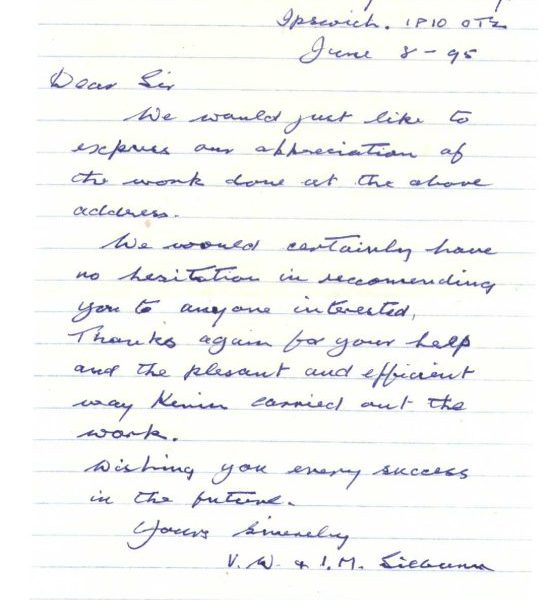 Ipswich. IP10 0TZ
June 8-95
Dear Sir
We would just like to
express our appreciation of
the work done at the above
address.
We would certainly have
no hesitation in reccomending
you to anyone interested,
Thanks again for your help
and the plesant and efficient
way Kevin carried out the
work.
Wishing you every success
in the future.
Yours Sincerely
V. W. & I. M.